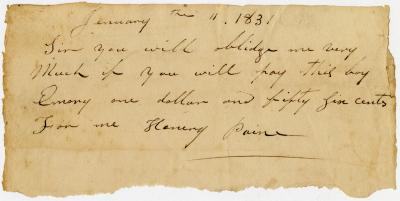 Jenuary the 11. 1831
Sir you will oblidge me very
Much if you will pay this boy
Emery one dollar and fifty six cents
For me Henery Paine